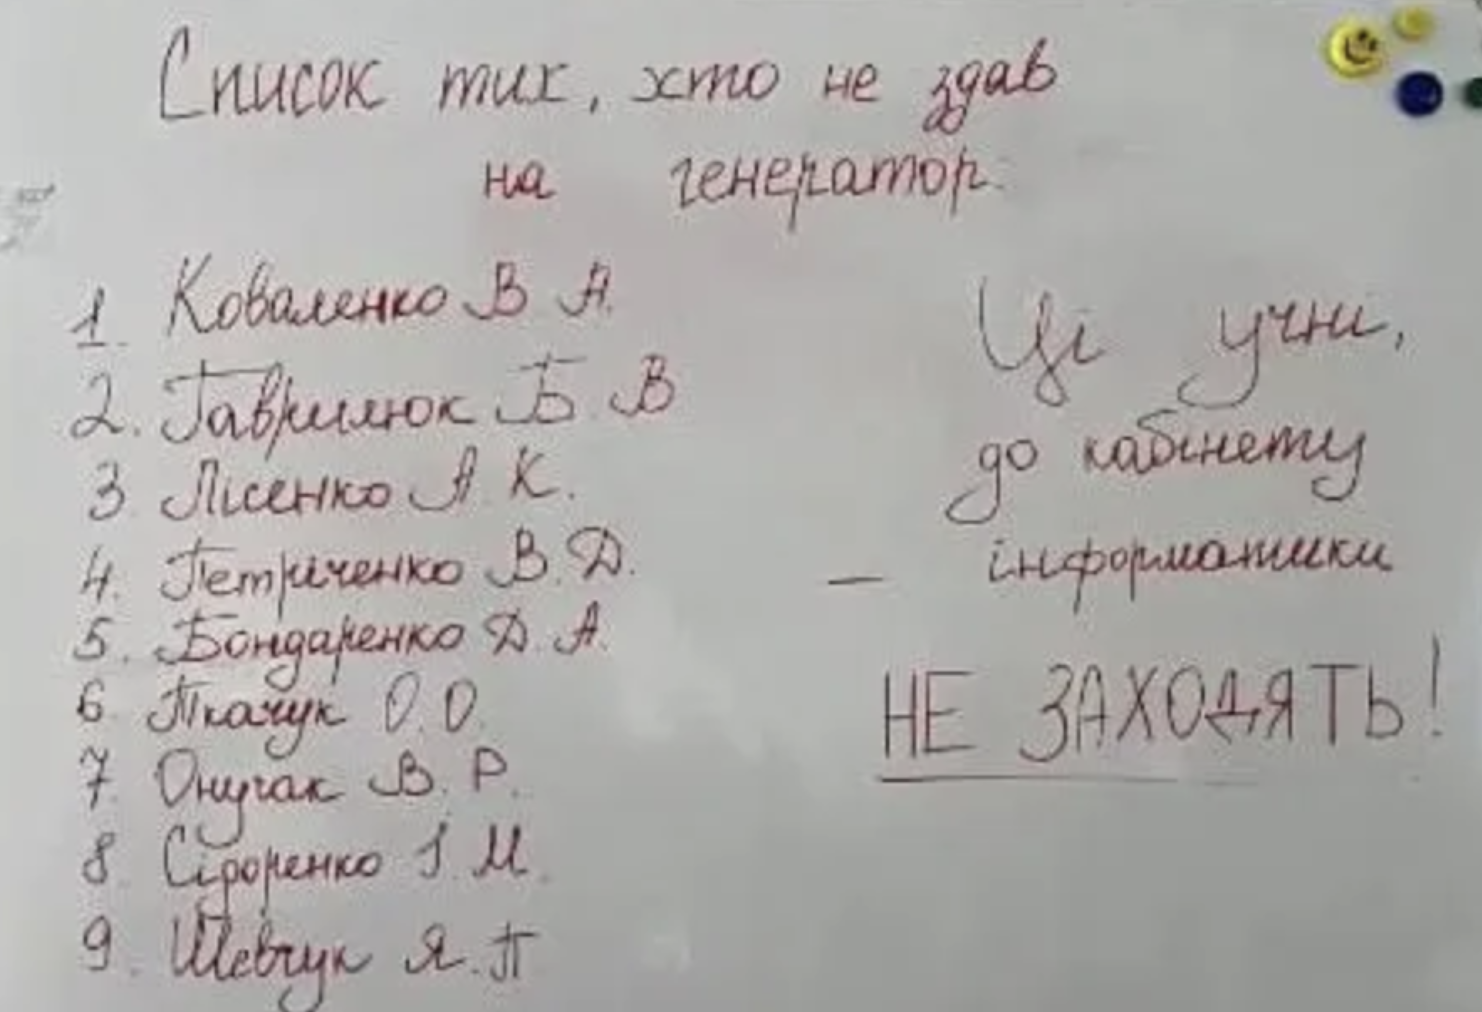 Список тих, хто не здав
на генератор.
1. Коваленко В А.
2. Гаврилюк Б. В
3 Лісенко А К.
4. Петриченко В. Д.
5. Бондаренко Д. А.
6 Ткачук О. О.
7. Онучак В. Р.
8. Сідоренко І. М.
9. Шевчук Я. П
Ці учні,
до кабінету
— інформатики
НЕ ЗАХОДЯТЬ!